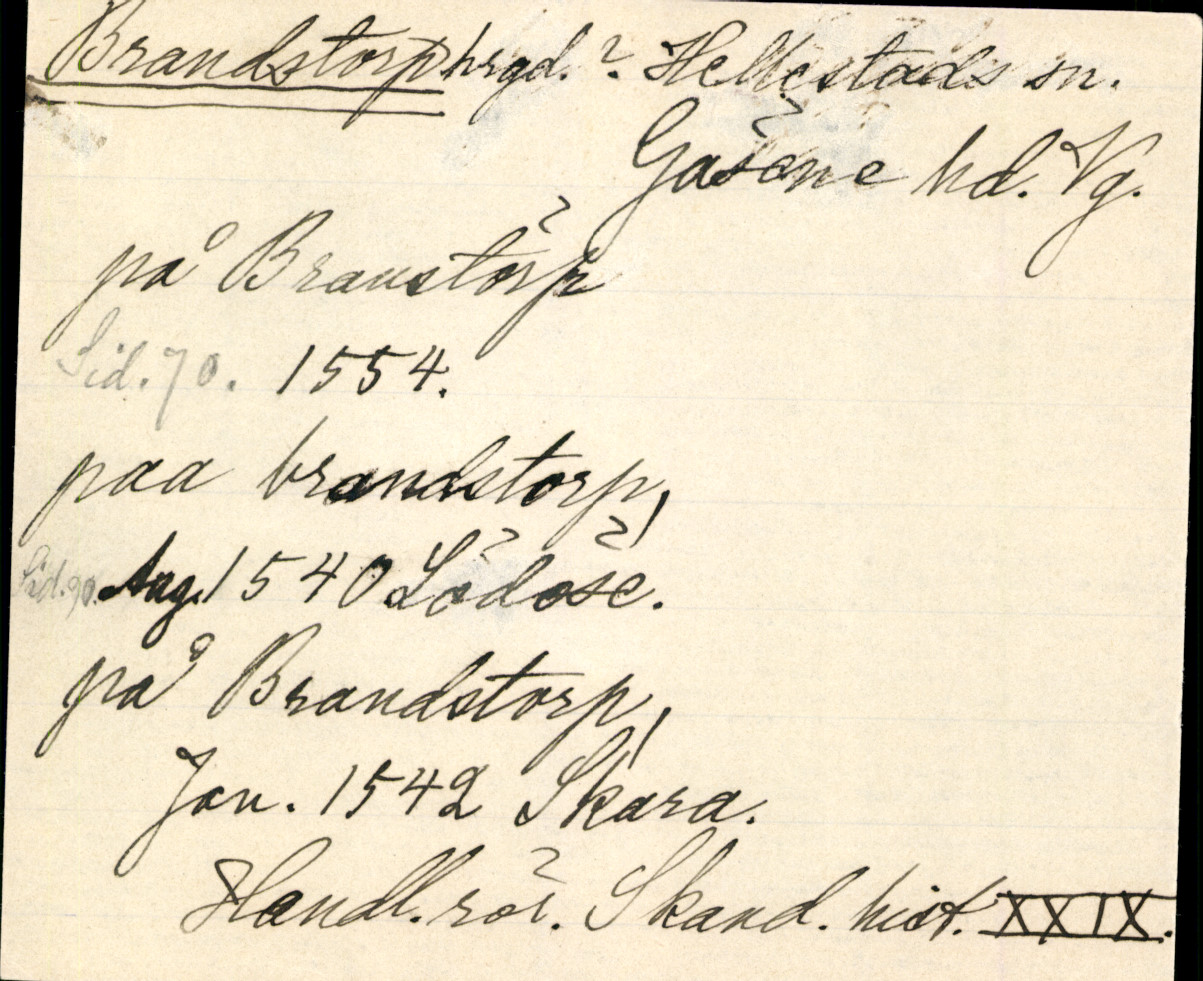 Brandstorp hrgd.? Hellestads sn.
Gäsene hd. Vg.
på Branstörp
Sid. 70. 1554.
paa brandstorp,
Sid. 90. Aug. 1540 Lödöse.
på Brandstorp,
Jan. 1542 Skara.
Handl. rör. Skand. hist. XXIX.